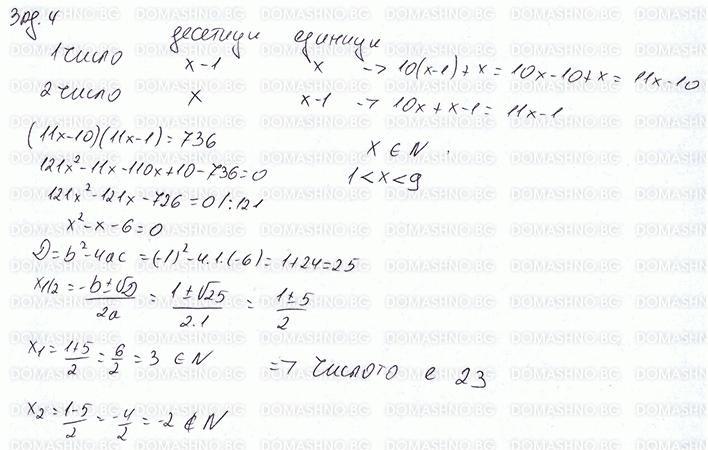 Зад. 4
десетици единици
1 число x-1 x -> 10(x-1)+x = 10x-10+x = 11x-10
2 число x x-1 -> 10x+x-1 = 11x-1
(11x-10)(11x-1)=736
x ∈ N
121x²-11x-110x+10-736=0
1<x<9
121x²-121x-726=0 /:121
x²-x-6=0
D=b²-4ac =(-1)²-4.1.(-6)=1+24=25
x1/2 = -b±√D/2a = 1±√25/2.1 = 1±5/2
x1 = 1+5/2 = 6/2 = 3 ∈ N => Числото е 23
x2 = 1-5/2 = -4/2 = -2 ∉ N
DOMASHNO.BG